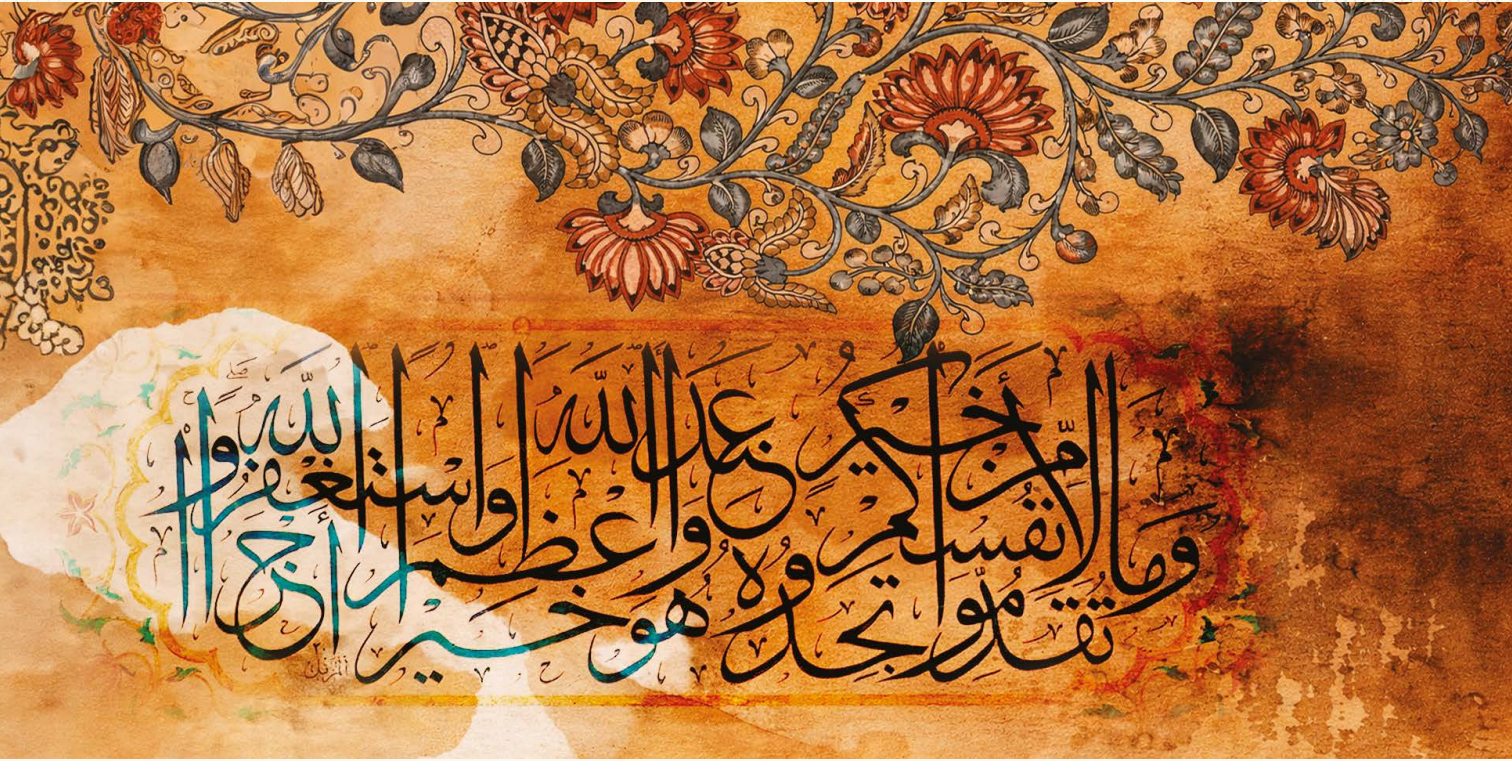 وما تقدموا لأنفسكم من خير تجدوه عند الله هو خيرا وأعظم أجرا واستغفروا الله
المزمل